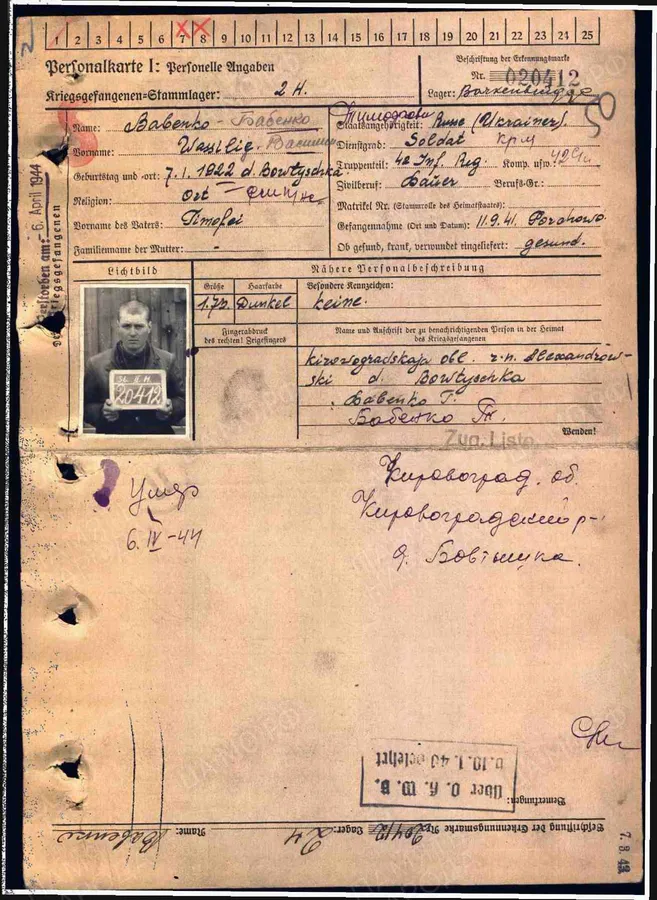 1 2 3 4 5 6 7 8 9 10 11 12 13 14 15 16 17 18 19 20 21 22 23 24 25
Personalkarte I: Personelle Angaben
Kriegsgefangenen=Stammlager: 2 H.
Beschriftung der Erkennungsmarke
Nr. 020412
Lager: Barkenbrügge
Name: Babenko - Бабенко
Vorname: Wassilig.
Geburtstag und =ort: 7.1.1922 d. Bowtyschka.
Religion: Ort
Vorname des Vaters: Timofei
Familienname der Mutter: -
Staatsangehörigkeit: Russe (Ukrainer)
Dienstgrad: Soldat
Truppenteil: 48 Inf. Reg. Komp. usw.:
Zivilberuf: Bauer Berufs=Gr.:
Matrikel Nr. (Stammrolle des Heimatstaates):
Gefangennahme (Ort und Datum): 11.9.41.
Ob gesund, krank, verwundet eingeliefert: gesund.
Verstorben am: - 6. April 1944
Lichtbild
Nähere Personalbeschreibung
Größe Haarfarbe Besondere Kennzeichen:
1.72 Dunkel keine.
Fingerabdruck
des rechten! Zeigefingers
Name und Anschrift der zu benachrichtigenden Person in der Heimat
des Kriegsgefangenen
kirowogradskaja obl. r-n. Alexandrow-
ski d. Bowtyschka
Babenko T.
Бабенко Т.
Wenden!
St. II H.
20412
Zug. Liste
Умер
6. IV -44
Кировоград. об.
Кировоградский р-
д. Бовтышка.
Bemerkungen:
über O.K.W. a.
v. 10.1.40 belehrt
Beschriftung der Erkennungsmarke Nr. 20412 Lager: 2 H Name: Babenko
7.3.42